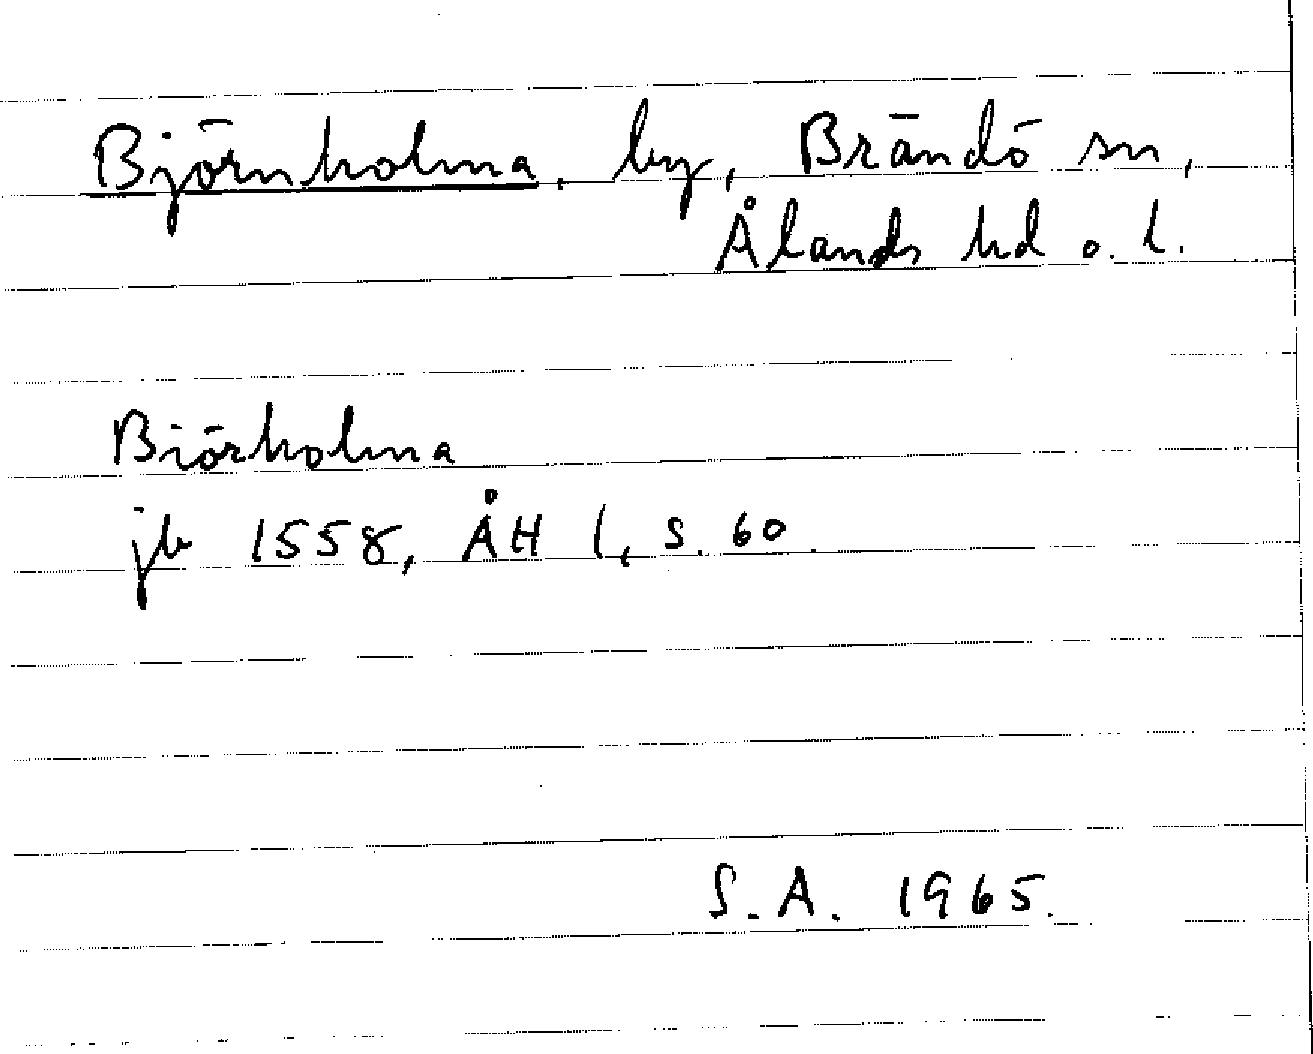 Björnholma, by, Brändö sn,
Ålands hd o. l.
Biörholma
jb 1558, ÅH 1, s. 60.
S.A. 1965.